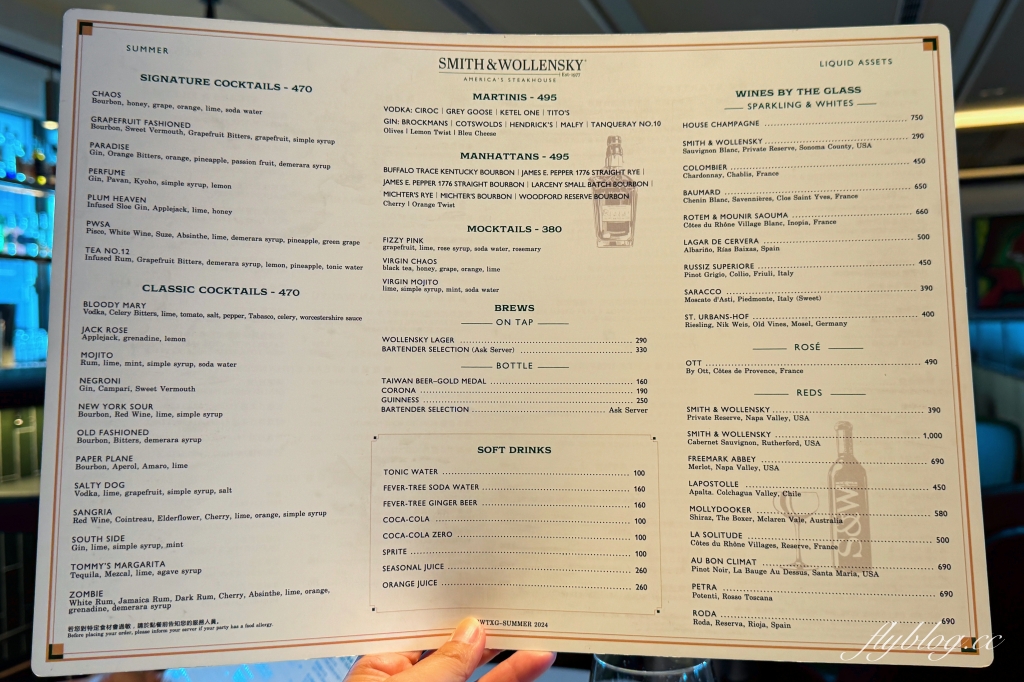 SUMMER
SMITH & WOLLENSKY
Est 1977
AMERICA'S STEAKHOUSE
LIQUID ASSETS
SIGNATURE COCKTAILS - 470
CHAOS
Bourbon, honey, grape, orange, lime, soda water
GRAPEFRUIT FASHIONED
Bourbon, Sweet Vermouth, Grapefruit Bitters, grapefruit, simple syrup
PARADISE
Gin, Orange Bitters, orange, pineapple, passion fruit, demerara syrup
PERFUME
Gin, Pavan, Kyoho, simple syrup, lemon
PLUM HEAVEN
Infused Sloe Gin, Applejack, lime, honey
PWSA
Pisco, White Wine, Suze, Absinthe, lime, demerara syrup, pineapple, green grape
TEA NO.12
Infused Rum, Grapefruit Bitters, demerara syrup, lemon, pineapple, tonic water
CLASSIC COCKTAILS - 470
BLOODY MARY
Vodka, Celery Bitters, lime, tomato, salt, pepper, Tabasco, celery, worcestershire sauce
JACK ROSE
Applejack, grenadine, lemon
MOJITO
Rum, lime, mint, simple syrup, soda water
NEGRONI
Gin, Campari, Sweet Vermouth
NEW YORK SOUR
Bourbon, Red Wine, lime, simple syrup
OLD FASHIONED
Bourbon, Bitters, demerara syrup
PAPER PLANE
Bourbon, Aperol, Amaro, lime
SALTY DOG
Vodka, lime, grapefruit, simple syrup, salt
SANGRIA
Red Wine, Cointreau, Elderflower, Cherry, lime, orange, simple syrup
SOUTH SIDE
Gin, lime, simple syrup, mint
TOMMY'S MARGARITA
Tequila, Mezcal, lime, agave syrup
ZOMBIE
White Rum, Jamaica Rum, Dark Rum, Cherry, Absinthe, lime, orange,
grenadine, demerara syrup
若您對特定食材會過敏，請於點餐前告知您的服務人員。
Before placing your order, please inform your server if your party has a food allergy.
MARTINIS - 495
VODKA: CIROC | GREY GOOSE | KETEL ONE | TITO'S
GIN: BROCKMANS | COTSWOLDS | HENDRICK'S | MALFY | TANQUERAY NO.10
Olives | Lemon Twist | Bleu Cheese
MANHATTANS - 495
BUFFALO TRACE KENTUCKY BOURBON | JAMES E. PEPPER 1776 STRAIGHT RYE |
JAMES E. PEPPER 1776 STRAIGHT BOURBON | LARCENY SMALL BATCH BOURBON |
MICHTER'S RYE | MICHTER'S BOURBON | WOODFORD RESERVE BOURBON
Cherry | Orange Twist
MOCKTAILS - 380
FIZZY PINK
grapefruit, lime, rose syrup, soda water, rosemary
VIRGIN CHAOS
black tea, honey, grape, orange, lime
VIRGIN MOJITO
lime, simple syrup, mint, soda water
BREWS
ON TAP
WOLLENSKY LAGER 290
BARTENDER SELECTION (Ask Server) 330
BOTTLE
TAIWAN BEER-GOLD MEDAL 160
CORONA 190
GUINNESS 250
BARTENDER SELECTION Ask Server
SOFT DRINKS
TONIC WATER 100
FEVER-TREE SODA WATER 160
FEVER-TREE GINGER BEER 160
COCA-COLA 100
COCA-COLA ZERO 100
SPRITE 100
SEASONAL JUICE 260
ORANGE JUICE 260
WTXG-SUMMER 2024
WINES BY THE GLASS
SPARKLING & WHITES
HOUSE CHAMPAGNE 750
SMITH & WOLLENSKY 290
Sauvignon Blanc, Private Reserve, Sonoma County, USA
COLOMBIER 450
Chardonnay, Chablis, France
BAUMARD 650
Chenin Blanc, Savennières, Clos Saint Yves, France
ROTEM & MOUNIR SAOUMA 660
Côtes du Rhône Village Blanc, Inopia, France
LAGAR DE CERVERA 500
Albariño, Rías Baixas, Spain
RUSSIZ SUPERIORE 450
Pinot Grigio, Collio, Friuli, Italy
SARACCO 390
Moscato d'Asti, Piedmonte, Italy (Sweet)
ST. URBANS-HOF 400
Riesling, Nik Weis, Old Vines, Mosel, Germany
ROSÉ
OTT 490
By Ott, Côtes de Provence, France
REDS
SMITH & WOLLENSKY 390
Private Reserve, Napa Valley, USA
SMITH & WOLLENSKY 1,000
Cabernet Sauvignon, Rutherford, USA
FREEMARK ABBEY 690
Merlot, Napa Valley, USA
LAPOSTOLLE 450
Apalta, Colchagua Valley, Chile
MOLLYDOOKER 580
Shiraz, The Boxer, Mclaren Vale, Australia
LA SOLITUDE 500
Côtes du Rhône Villages, Reserve, France
AU BON CLIMAT 690
Pinot Noir, La Bauge Au Dessus, Santa Maria, USA
PETRA 690
Potenti, Rosso Toscana
RODA 690
Roda, Reserva, Rioja, Spain
W&S
flyblog.cc